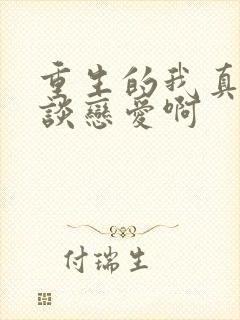 重生的我真
談戀愛啊
付瑞生